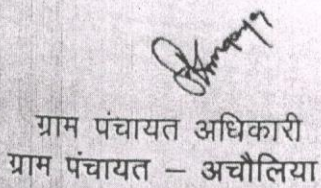 ग्राम पंचायत अधिकारी
ग्राम पंचायत – अचौलिया